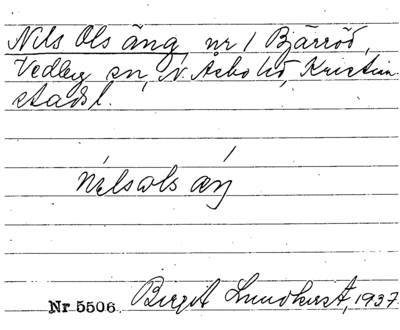 Nils Ols äng, nr 1 Bjärröd,
Vedby sn, N. Åsbo hd, Kristian
stads l.
Nilsols äng
Nr 5506. Birgit Lundkvist, 1937